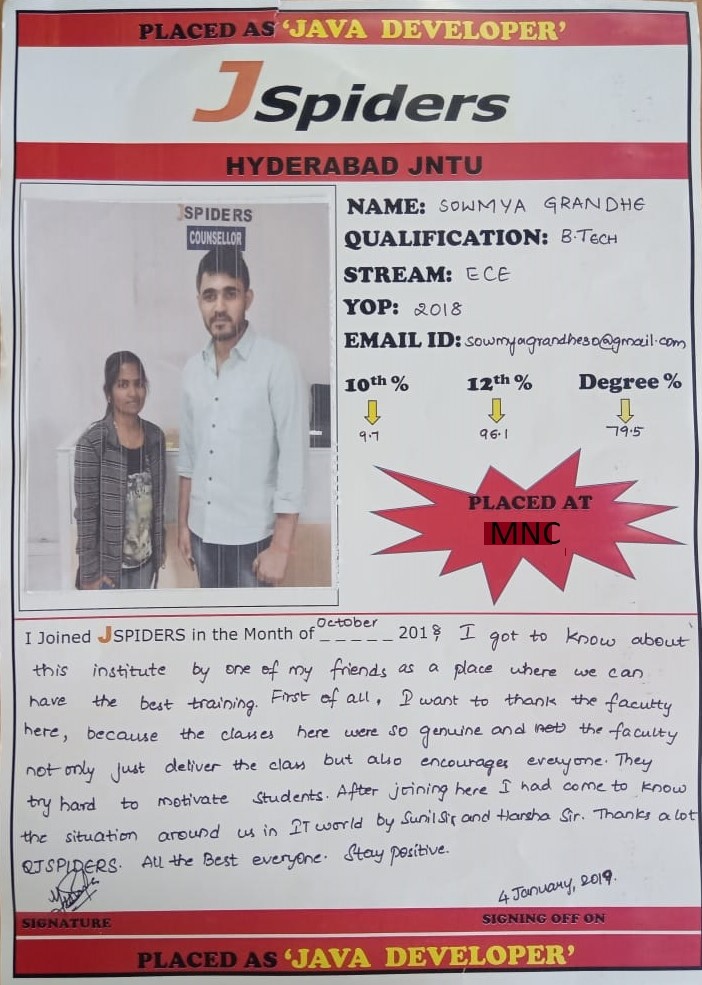 PLACED AS ‘JAVA DEVELOPER’
JSpiders
HYDERABAD JNTU
JSPIDERS
COUNSELLOR
NAME: SOWMYA GRANDHE
QUALIFICATION: B.TECH
STREAM: ECE
YOP: 2018
EMAIL ID: sowmyagrandhe50@gmail.com
10th % 12th % Degree %
9.7 96.1 79.5
PLACED AT
MNC
I Joined JSPIDERS in the Month of October 2018 I got to know about
this institute by one of my friends as a place where we can
have the best training. First of all, I want to thank the faculty
here, because the classes here were so genuine and not the faculty
not only just deliver the class but also encourages everyone. They
try hard to motivate students. After joining here I had come to know
the situation around us in IT world by Sunil Sir and Harsha Sir. Thanks a lot
QJSPIDERS. All the Best everyone. Stay positive.
4 January, 2019.
SIGNATURE SIGNING OFF ON
PLACED AS ‘JAVA DEVELOPER’